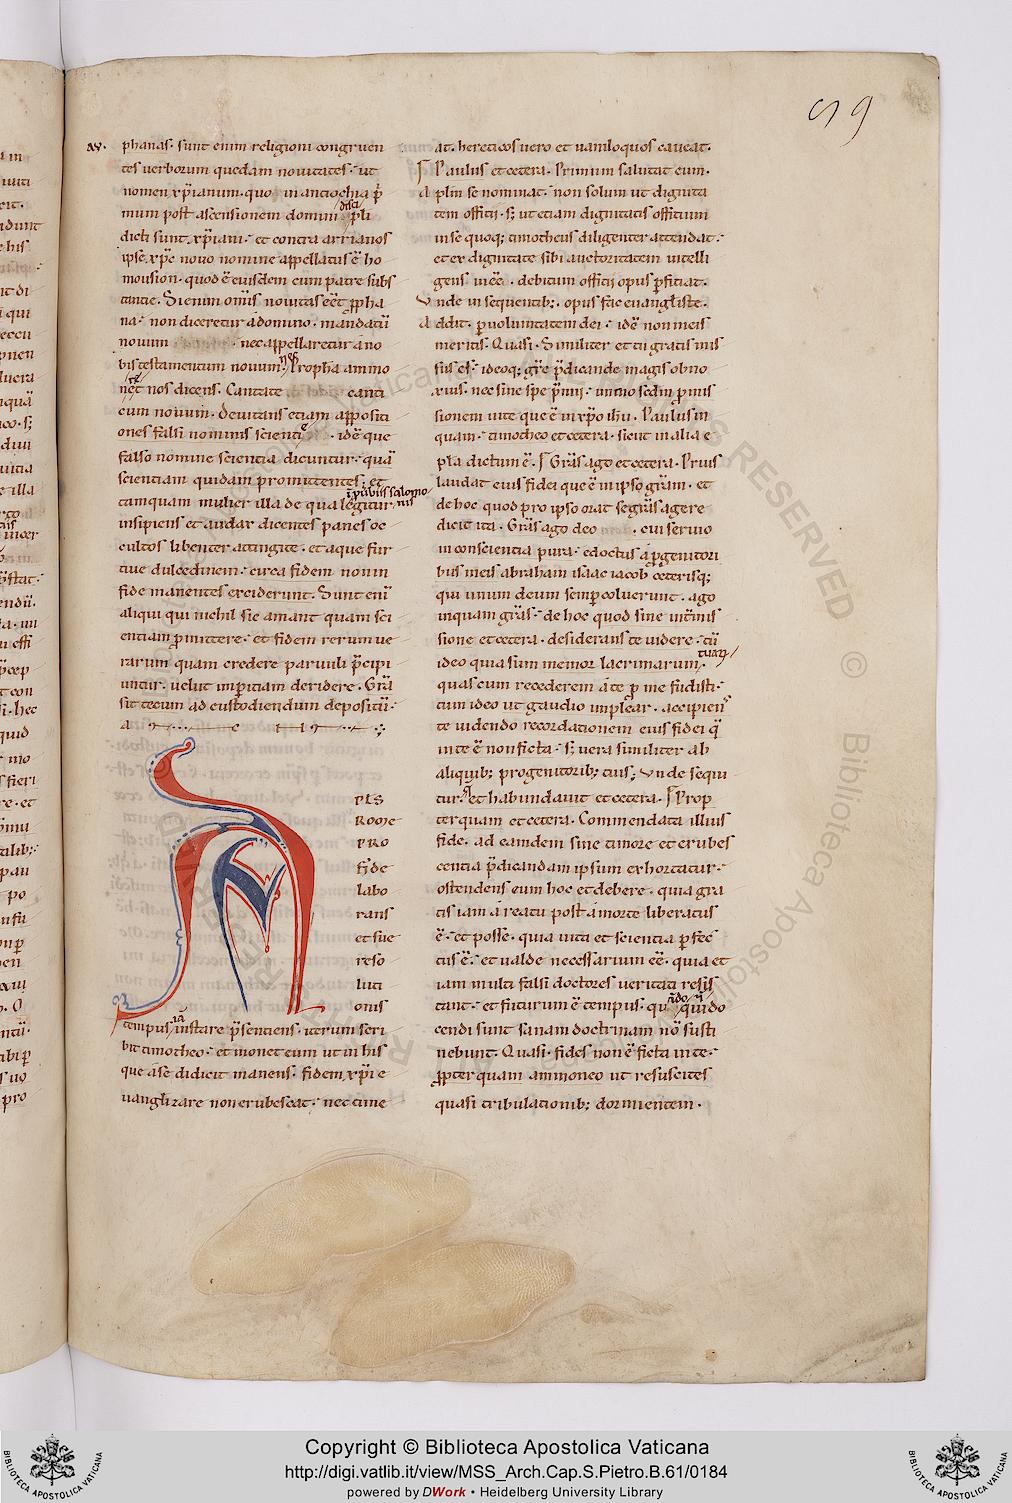 59
av.
phanas. sunt enim religioni congruen
tes verborum quedam novitates. ut
nomen xp̄ianum. quo in antiochia p̄
mum post ascensionem domini disci pli
dicti sunt xp̄iani. et contra arrianos
ipse xp̄c novo nomine appellatus ē ho
mousion. quod ē eiusdem cum patre subs
tantie. Si enim om̄is novitas eēt ꝓpha
na. non diceretur a domino. mandatū
novum nec appellaretur a no
bis testamentum novum. Propha
cum novum. Devitans etiam appositi
ones falsi nominis scientie. idē que
falso nomine scientia dicuntur. quā
scientiam quidam promittentes; et
tamquam mulier illa de qua legitur in ꝓverbiis salomo
nis
insipiens et audax dicentes panes oc
cultos libenter attingite. et aque fur
tive dulcedinem. circa fidem non in
fide manentes exciderunt. Sunt eni
aliqui qui nichil sic amant quam sci
entiam ꝓmittere. et fidem rerum ve
rarum quam credere parvuli p̄cipi
untur. velut imꝑitiam deridere. Grā
sit tecum ad custodiendum depositū.
PLS
ROME
PRO
fide
labo
rans
et sue
reso
luti
onis
tempus iā instare p̄sentiens. iterum scri
bit timotheo. et monet eum ut in his
que a se didicit manens. fidem xp̄i e
uanglizare non erubescat. nec time
at. hereticos vero et vaniloquos caveat.
Paulus et cetera. Primum salutat eum.
A plm̄ se nominat. non solum ut dignita
tem officii. s; ut etiam dignitatis officium
in se quoq; timotheus diligenter attendat.
et ex dignitate sibi auctoritatem intelli
gens inēe. debitum officii opus ꝑficiat.
Unde in sequentib;. opus fac evangliste.
A ddit. ꝑ voluntatem dei. idē non meis
meritis. Quasi. Similiter et tu gratis mis
sus es. ideoq; grē p̄dicande magis obno
xius. nec sine spe p̄mii. immo sedm̄ ꝓmis
sionem vite que ē in xp̄o ihū. Paulus in
quam. timotheo et cetera. sicut in alia e
pla dictum ē. Grās ago et cetera. Prius
laudat eius fidei que ē in ipso grām. et
de hoc quod pro ipso orat se grās agere
dicit ita. Grās ago deo . cui servio
in conscientia pura. edoctus a ꝓgenitori
bus meis abraham isaac iacob ceterisq;
qui unum deum semꝑ coluerunt. ago
inquam grās. de hoc quod sine int̄mis
sione et cetera. desiderans te videre. cū
ideo quia sum memor lacrimarum. tuarꝝ
quas cum recederem a te ꝑ me fudisti.
tum ideo ut gaudio implear. accipiens
te videndo recordationem eius fidei q̄
in te ē non ficta. s; vera similiter ab
aliquib; progenitorib; tuis; Unde sequi
tur. et habundavit et cetera. Prop
ter quam et cetera. Commendata illius
fide. ad eamdem sine timore et erubes
centia p̄dicandam ipsum exhortatur.
ostendens eum hoc et debere. quia gra
tis iam a reatu post a morte liberatus
ē. et posse. quia vita et scientia ꝑfec
tus ē. et valde necessarium eē. quia et
iam multi falsi doctores veritati resis
tant. et futurum ē tempus. quando
cendi sunt sanam doctrinam nō susti
nebunt. Quasi. fides non ē ficta in te.
ꝓpter quam ammoneo ut resuscites
quasi tribulationib; dormientem.
Copyright © Biblioteca Apostolica Vaticana
http://digi.vatlib.it/view/MSS_Arch.Cap.S.Pietro.B.61/0184
powered by DWork • Heidelberg University Library